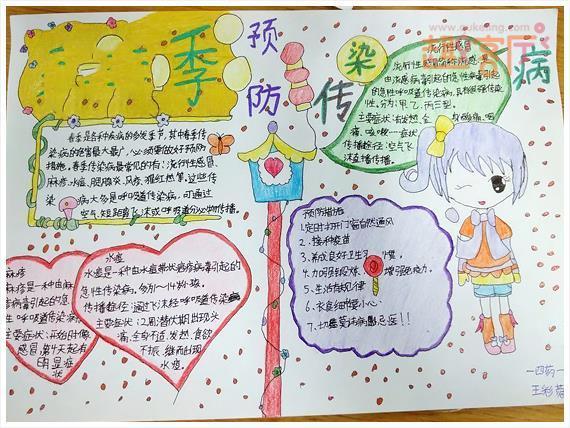 www.quketing.com
季预防传染病
春季是各种疾病的多发季节,其中季传
染病的危害最大最广,必须要做好预防
措施。春季传染病最常见的有:流行性感冒、
麻疹、水痘、腮腺炎、风疹、猩红热等,这些传
染病大多是呼吸道传染病,可通过
空气、短距离飞沫或呼吸道分泌物传播。
流行性感冒
流行性感冒简称流感,是
由流感病毒引起的急性呼吸道传染病,具有很强传染
性,分为:甲、乙、丙三型。
主要症状:发烧、全身酸痛、咽
痛、咳嗽
传播途径:空气飞
沫直播传播。
麻疹
麻疹是一种由麻
疹病毒引起的急
性呼吸道传染病
主要症状:开始时像
感冒,第十天起有
明显症
状
水痘
水痘是一种由水痘带状疱疹病毒引起的
急性传染病。
传播途径:通过飞沫经呼吸道传染
主要症状:2周潜伏期出现头
痛、全身不适、发热、食欲
不振、继而出现
水痘。
预防措施
1.定时打开门窗自然通风
2.接种疫苗
3.养成良好卫生习惯。
4.加强锻炼 增强免疫力。
5.生活有规律
6.衣食细节要小心
7.切莫要讳病忌医!!
一四药一
王彩